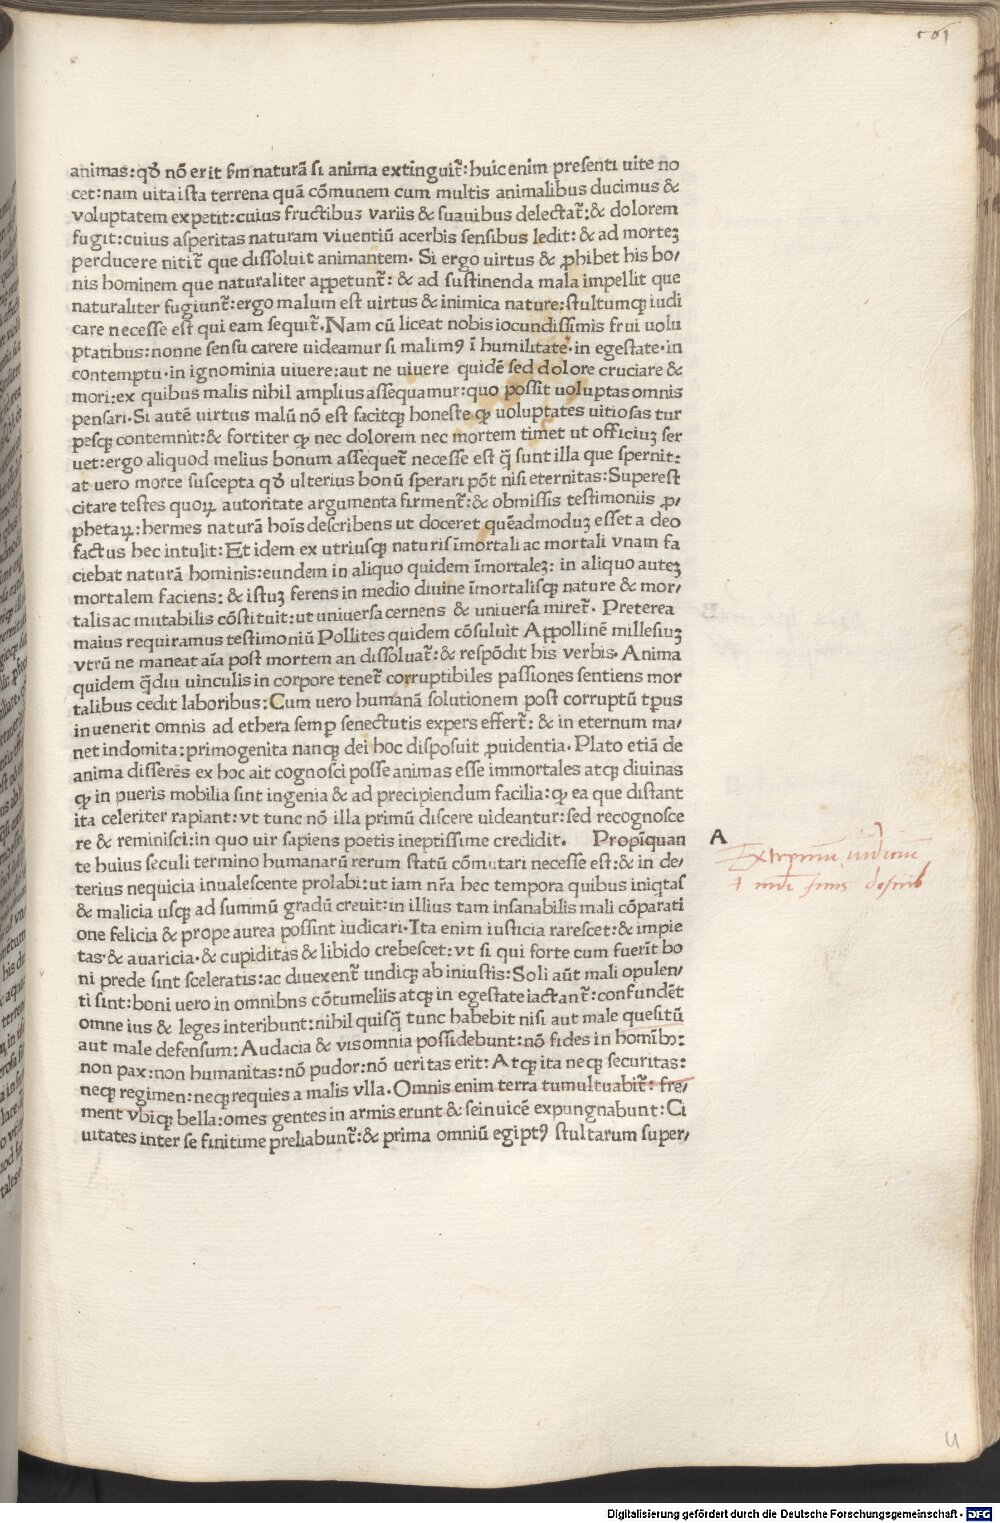 animas:qđ nō erit s̄m naturā si anima extinguit̄: huic enim presenti uite no
cet: nam uita ista terrena quā cōmunem cum multis animalibus ducimus &
voluptatem expetit: cuius fructibus variis & suauibus delectat̄: & dolorem
fugit: cuius asperitas naturam viuentiū acerbis sensibus ledit: & ad morteꝫ
perducere nitit̄ que dissoluit animantem. Si ergo uirtus & ꝓhibet his bo/
nis hominem que naturaliter appetunt̄: & ad sustinenda mala impellit que
naturaliter fugiunt̄: ergo malum est uirtus & inimica nature: stultumqꝫ iudi
care necesse est qui eam sequit̄. Nam cū liceat nobis iocundissimis frui uolu
ptatibus: nonne sensu carere uideamur si malimꝰ ī humilitate. in egestate. in
contemptu. in ignominia uiuere: aut ne uiuere quidē sed dolore cruciare &
mori: ex quibus malis nihil amplius assequamur: quo possit uoluptas omnis
pensari. Si autē uirtus malū nō est facitqꝫ honeste qꝫ uoluptates uitiosas tur
pesqꝫ contemnit: & fortiter qꝫ nec dolorem nec mortem timet ut officiuꝫ ser
uet: ergo aliquod melius bonum assequet̄ necesse est q̄ sunt illa que spernit:
at uero morte suscepta qđ ulterius bonū sperari pōt nisi eternitas: Superest
citare testes quoꝝ autoritate argumenta firment̄: & obmissis testimoniis ꝓ/
phetaꝝ: hermes naturā hoīs describens ut doceret quēadmoduꝫ esset a deo
factus hec intulit: Et idem ex utriusqꝫ naturis īmortali ac mortali vnam fa
ciebat naturā hominis: eundem in aliquo quidem īmortaleꝫ: in aliquo auteꝫ
mortalem faciens: & istuꝫ ferens in medio diuine īmortalisqꝫ nature & mor/
talis ac mutabilis cōstituit: ut uniuersa cernens & uniuersa miret̄. Preterea
maius requiramus testimoniū Pollites quidem cōsuluit Appollinē millesiuꝫ
vtrū ne maneat aīa post mortem an dissoluat̄: & respōdit his verbis. Anima
quidem q̄diu uinculis in corpore tenet̄ corruptibiles passiones sentiens mor
talibus cedit laboribus: Cum uero humanā solutionem post corruptū tp̄us
inuenerit omnis ad ethera semp̱ senectutis expers effert̄: & in eternum ma/
net indomita: primogenita nanqꝫ dei hoc disposuit ꝓuidentia. Plato etiā de
anima disserēs ex hoc ait cognosci posse animas esse immortales atqꝫ diuinas
qꝫ in pueris mobilia sint ingenia & ad precipiendum facilia: qꝫ ea que distant
ita celeriter rapiant: vt tunc nō illa primū discere uideantur: sed recognosce
re & reminisci: in quo uir sapiens poetis ineptissime credidit. Propīquan A
te huius seculi termino humanarū rerum statū cōmutari necesse est: & in de/
terius nequicia inualescente prolabi: ut iam nr̄a hec tempora quibus iniqtas
& malicia usqꝫ ad summū gradū creuit: in illius tam insanabilis mali cōparati
one felicia & prope aurea possint iudicari. Ita enim iusticia rarescet: & impie
tas. & auaricia. & cupiditas & libido crebescet: vt si qui forte cum fuerīt bo
ni prede sint sceleratis: ac diuexent̄ undiqꝫ ab iniustis: Soli aūt mali opulen/
ti sint: boni uero in omnibns cōtumeliis atqꝫ in egestate iactant̄: confundēt
omne ius & leges interibunt: nihil quisq̄ tunc habebit nisi aut male quesitū
aut male defensum: Audacia & vis omnia possidebunt: nō fides in homībꝫ:
non pax: non humanitas: nō pudor: nō ueritas erit: Atqꝫ ita neqꝫ securitas:
neqꝫ regimen: neqꝫ requies a malis vlla. Omnis enim terra tumultuabit̄: fre/
ment vbiqꝫ bella: omes gentes in armis erunt & se inuicē expungnabunt: Ci
uitates inter se finitime preliabunt̄: & prima omniū egiptꝰ stultarum super/
Digitalisierung gefördert durch die Deutsche Forschungsgemeinschaft - DFG